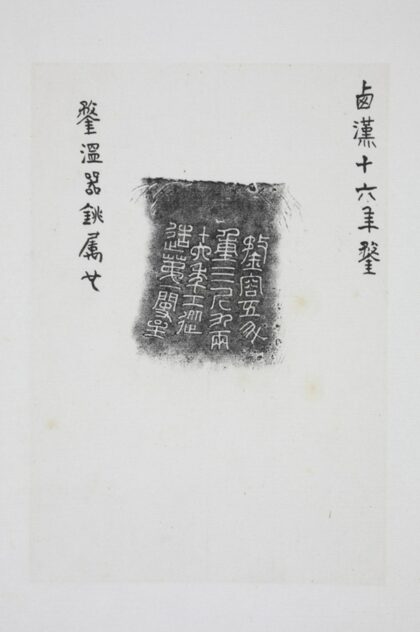 卥漢十六年鍪
鍪容五升
重三斤九兩
十六年工從
造第
鍪溫器銚屬也